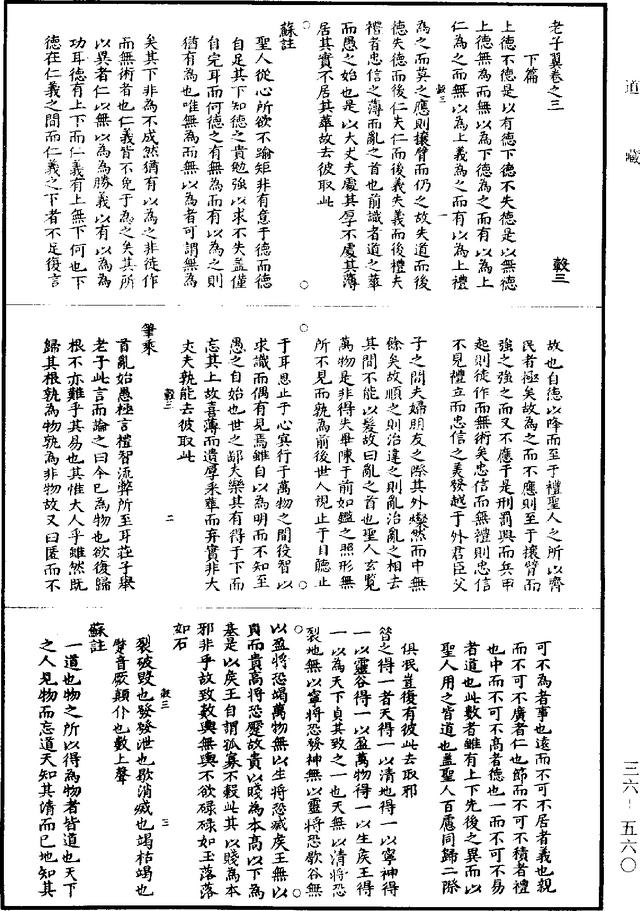 道藏
老子翼卷之三
榖三
下篇
上德不德是以有德下德不失德是以無德
上德無為而無以為下德為之而有以為上
仁為之而無以為上義為之而有以為上禮
為之而莫之應則攘臂而仍之故失道而後
德失德而後仁失仁而後義失義而後禮夫
禮者忠信之薄而亂之首也前識者道之華
而愚之始也是以大丈夫處其厚不處其薄
居其實不居其華故去彼取此
蘇註
聖人從心所欲不踰矩非有意于德而德
自足其下知德之貴勉強以求不失蓋僅
自完耳而何德之有無為而有以為之則
猶有為也唯無為而無以為者可謂無為
矣其下非為不成然猶有以為之非徒作
而無術者也仁義皆不免于為之矣其所
以異者仁以無以為為勝義以有以為為
功耳德有上下而仁義有上無下何也下
德在仁義之間而仁義之下者不足復言
故也自德以降而至于禮聖人之所以齊
民者極矣故為之而不應則至于攘臂而
強之強之而又不應于是刑罰興而兵甲
起則徒作而無術矣忠信而無禮則忠信
不見禮立而忠信之美發越于外君臣父
子之間夫婦朋友之際其外燦然而中無
餘矣故順之則治違之則亂治亂之相去
其間不能以髮故曰亂之首也聖人玄覽
萬物是非得失畢陳于前如鑑之照形無
所不見而孰為前後世人視止于目聽止
于耳思止于心冥行于萬物之間役智以
求識而偶有見焉雖自以為明而不知至
愚之自始也世之鄙夫樂其有得于下而
忘其上故喜薄而遺厚采華而棄實非大
丈夫孰能去彼取此
筆乘
首亂始愚極言禮智流弊所至耳莊子舉
老子此言而論之曰今已為物也欲復歸
根不亦難乎其易也其惟大人乎雖然既
歸其根孰為物孰為非物故又曰匿而不
可不為者事也遠而不可不居者義也親
而不可不廣者仁也節而不可不積者禮
也中而不可不高者德也一而不可不易
者道也此數者雖有上下先後之異而以
聖人用之皆道也蓋聖人百慮同歸二際
俱泯豈復有彼此去取邪
昔之得一者天得一以清地得一以寧神得
一以靈谷得一以盈萬物得一以生侯王得
一以為天下貞其致之一也天無以清將恐
裂地無以寧將恐發神無以靈將恐歇谷無
以盈將恐竭萬物無以生將恐滅侯王無以
貞而貴高將恐蹷故貴以賤為本高以下為
基是以侯王自謂孤寡不穀此其以賤為本
邪非乎故致數輿無輿不欲碌碌如玉落落
如石
裂破毀也發發泄也歇消滅也竭枯竭也
蹷音厥顛仆也數上聲
蘇註
一道也物之所以得為物者皆道也天下
之人見物而忘道天知其清而已地知其
榖三 一
榖三 二
榖三 三
三六-五六〇